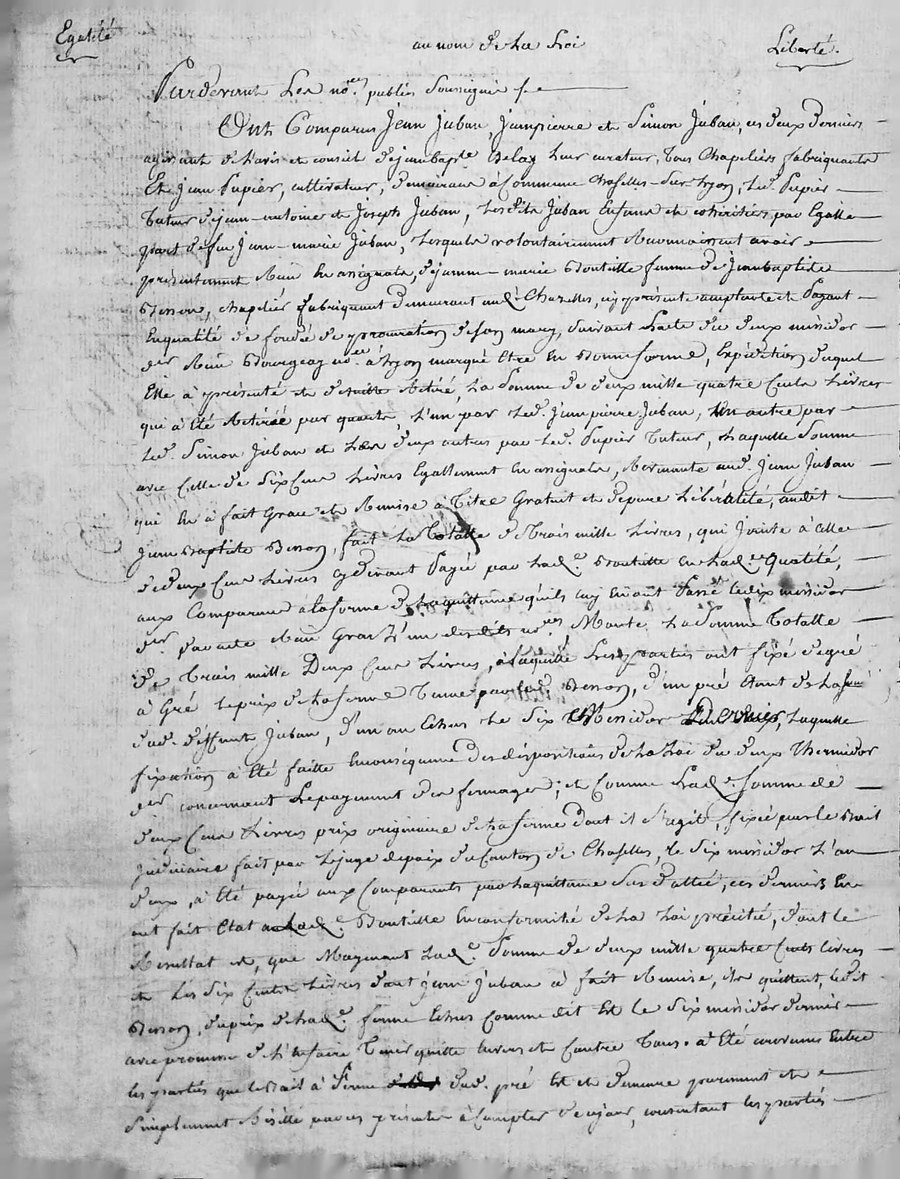 Egalité
au nom de La Loi
Liberté.
Pardevant Les no.res publics Soussignés /.
Ont Comparus Jean Juban, Jeanpierre et Simon Juban, ces deux Derniers
agissant de L'avis et conseil de jeanbapte Delay Leur curateur, Tous Chapeliers fabriquants
Et jean Pupier, cultivateur, demeurans à Commune Chaselles-Sur-Lyon, Led. Pupier
Tuteur de jean-antoine et Joseph Juban, Lesdits Juban Enfans et cohéritiers par Egalle
part de feu jean-marie Juban, Lesquels volontairement Reconnoissent avoir
présentement Reçu En assignats, de jeanne-marie Bouteille femme de Jeanbaptiste
Besson, chapelier fabriquant Demeurant aud. Chazelles, icy présente acceptante et Payant
Enqualité de fondée de procuration de son mary, Suivant Lacte du deux messidor
der Reçu Bourgeay no.re à Lyon marqué Etre En Bonneforme, Expédition duquel
Elle à présenté et de suitte Retiré, La Somme de deux mille quatre Cents Livres
qui à Eté Retirée par quarts, L'un par Led. Jeanpierre Juban, Un autre par
Led. Simon Juban et Les deux autres par Led. Pupier Tuteur, Laquelle Somme
avec Celle de Six Cens Livres Egallement En assignats, Revenante aud. Jean Juban
qui En à fait Grace et Remise à Titre Gratuit et de pure Libéralité, audit
Jean Baptiste Besson, fait La Totalle de Trois mille Livres, qui Jointe à Celle
de deux Cens Livres cydevant Payée par Lad.e Bouteille en Lad.e Qualité,
aux Comparans à La forme de La quittance qu'ils luy En ont Passé Ledix messidor
der. pardevant Gras L'un desdits no.res Monte La Somme Totalle
De Trois mille Deux Cens Livres, à Laquelle Lesparties ont fixé de gré
à Gré Leprix de La ferme Tenue par Led. Besson, d'un pré Etant de La
dud. deffunt Juban, d'un an Echus Le Six Messidor Dernier, Laquelle
fixation à Eté faitte Enconséquence des dispositions de La Loi du deux Thermidor
der concernant Lepayement des fermages; et Comme Lad.e Somme de
deux Cens Livres prix originaire de La ferme dont il S'agit, fixée par le Bail
judiciaire fait par Le juge depaix du Canton de Chaselles, le Six messidor L'an
deux, à Eté payée aux Comparants par La quittance Sus Dattée, ces derniers En
ont fait Etat à Lad.e Bouteille Enconformité de La Loi précitée, dont le
Resultat est, que Moyenant Lad.e Somme de deux mille quatre Cents Livres
et Les Six Cents Livres dont jean Juban à fait Remise, ils quittent, ledit
Besson, duprix de Lad.e ferme Echus Comme dit Est le Six messidor dernier
avec promesse de L'en faire Tenir quitte Envers et Contre Tous. à Eté convenus Entre
les parties que le Bail à ferme dud. pré Est et Demeure purement et
Simplement Résilié par ces présentes à Compter de cejour, consentant les parties